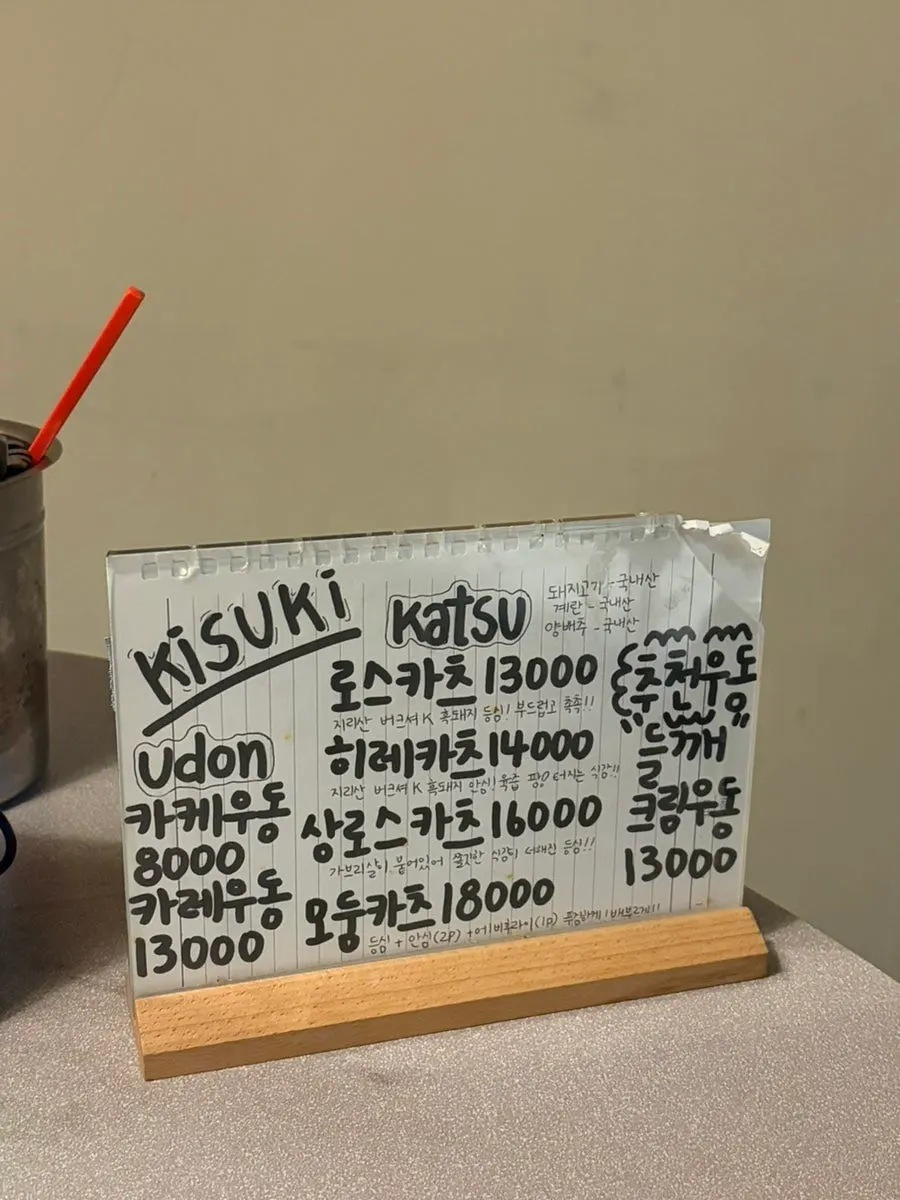 KISUKI
Katsu
돼지고기 - 국내산
계란 - 국내산
양배추 - 국내산
로스카츠 13000
지리산 버크셔 K 흑돼지 등심! 부드럽고 촉촉!!
히레카츠 14000
지리산 버크셔 K 흑돼지 안심! 육즙 팡 터지는 식감!!
상로스카츠 16000
가브리살이 붙어있어 쫄깃한 식감이 더해진 등심!!
모둠카츠 18000
등심 + 안심(2P) + 에비후라이(1P) 푸짐하게! 배부르게!!
Udon
카케우동
8000
카레우동
13000
추천우동
들깨
크림우동
13000